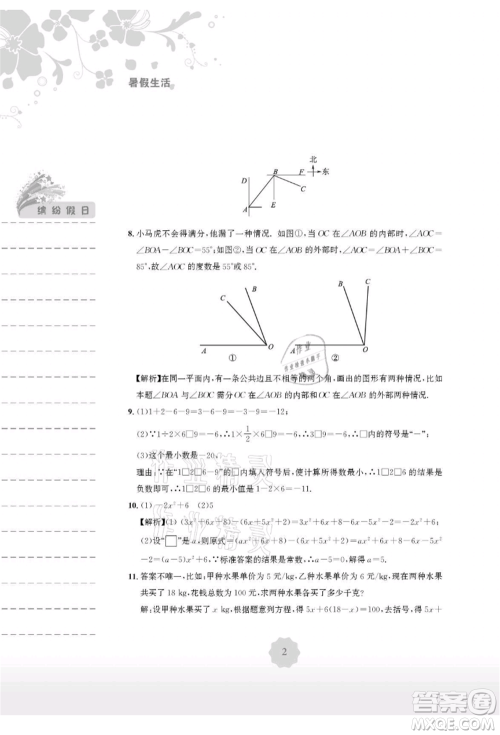 暑假生活
缤纷假日
北
D B F 东
A E C
8. 小马虎不会得满分，他漏了一种情况. 如图①，当 OC 在∠AOB 的内部时，∠AOC
=∠BOA－∠BOC=55°；如图②，当 OC 在∠AOB 的外部时，∠AOC=∠BOA＋∠BOC=
85°，故∠AOC 的度数是 55°或 85°.
B B C
C
A O A O
① ②
【解析】在同一平面内，有一条公共边且不相等的两个角，画出的图形有两种情况，所以
本题∠AOB 与∠BOC 需分成两种情况.
9. (1)1＋2－6－9=3－6－9=－3－9=－12；
(2)∵1÷2×6□9=－6，∴1×1/2×6□9=－6，∴3□9=－6，∴□内的符号是“－”；
(3)这个最小数是－20，
理由：∵在“1□2□6－9”的□内填入符号后，使计算所得数最小，∴1□2□6 的结果是
负数即可，∴1□2□6 的最小值是 1－2×6=－11，∴1□2□6－9 的最小值是－11－9=－20.
10. (1)－2x²＋6 (2)5
【解析】(1) (3x²＋6x＋8)－(6x＋5x²＋2)=3x²＋6x＋8－6x－5x²－2=－2x²＋6；
(2)设“□”是 a，则原式=(ax²＋6x＋8)－(6x＋5x²＋2)=ax²＋6x＋8－6x－5x²－2=
(a－5)x²＋6，∵标准答案的结果是常数，∴a－5=0，解得 a=5.
11. 答案不唯一，比如：甲种水果单价为 5 元/kg，乙种水果单价为 6 元/kg，某人在两种水果
共买了 18 kg，花钱总数为 100 元，求两种水果各买了多少千克？
解：设甲种水果买了 x kg，那么依据题意可列方程，得 5x＋6(18－x)=100，解得 5x＋
2
作业精灵
答案圈
MXQE.COM